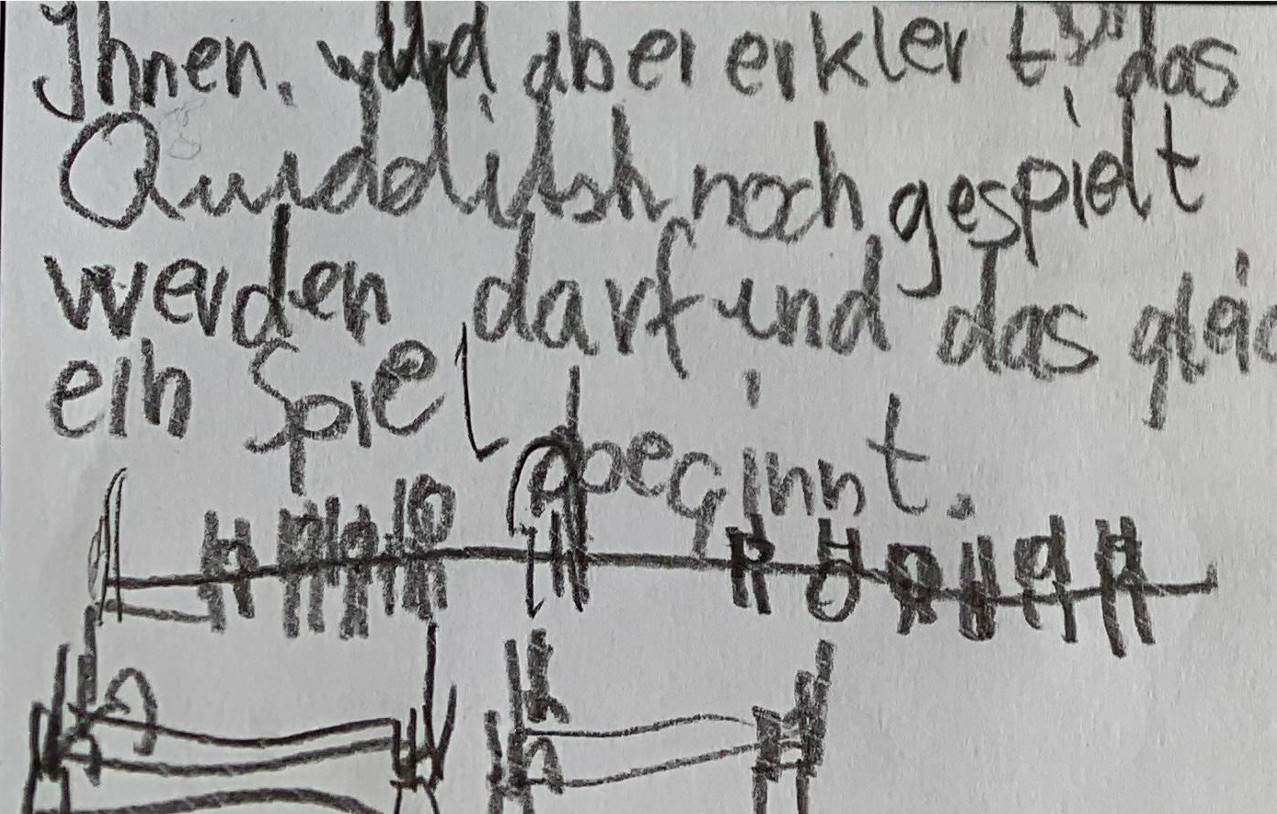 Ihnen. wird aber erklert, das
Quidditsh noch gespielt
werden darf und das gleic
ein Spiel
beginnt.